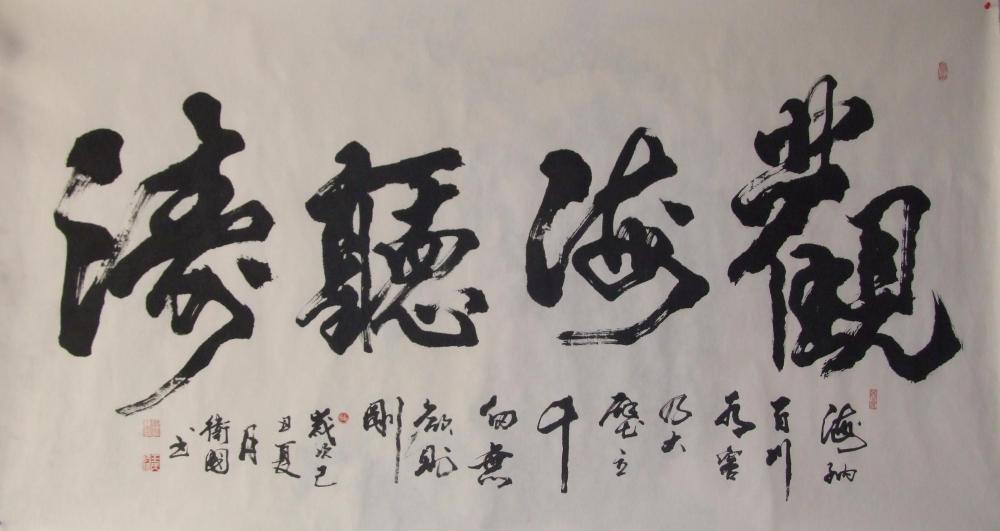 觀海聽濤
海納
百川
有容
乃大
壁立
千
仞無
欲則
剛
歲次己
丑夏
月
衛國
书